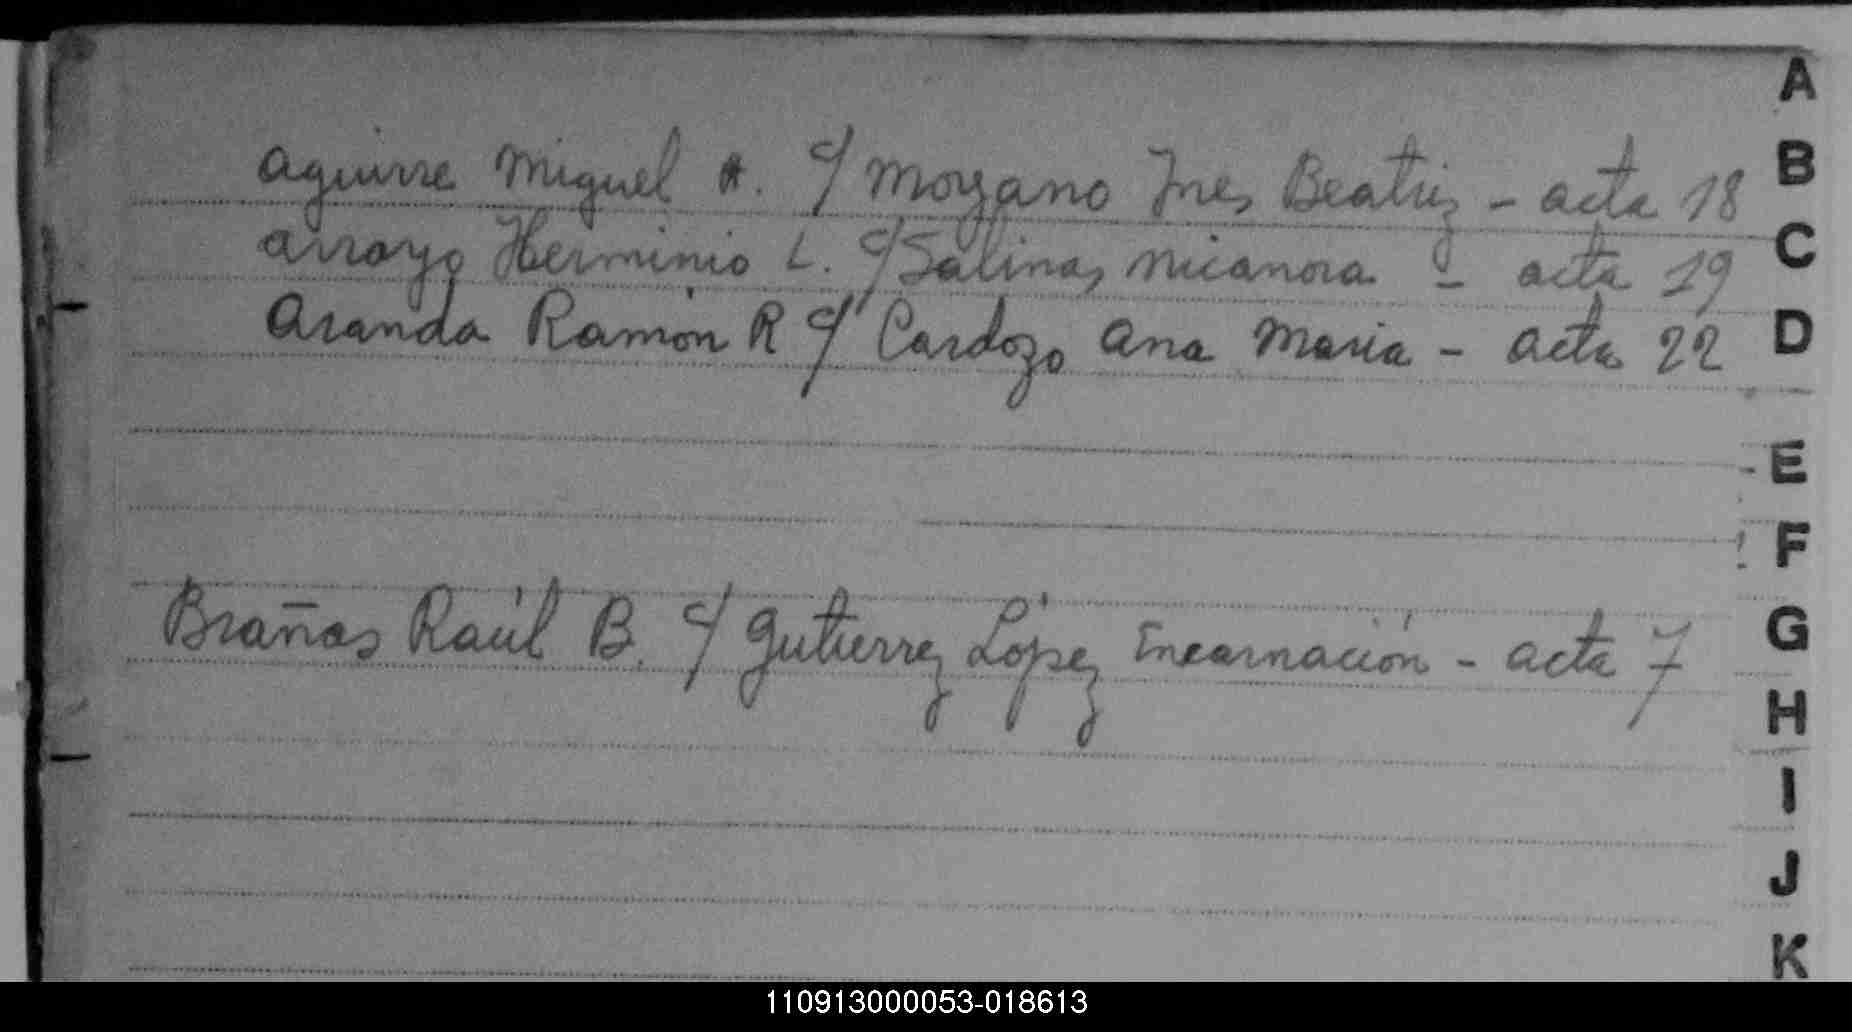 Aguirre Miguel A. c/ Moyano Ines Beatriz - acta 18
Arroyo Herminio L. c/ Salinas Nicanora - acta 19
Aranda Ramón R c/ Cardozo Ana Maria - acta 22
Brañas Raúl B. c/ Gutierrez López Encarnación - acta 7
A
B
C
D
E
F
G
H
I
J
K
110913000053-018613